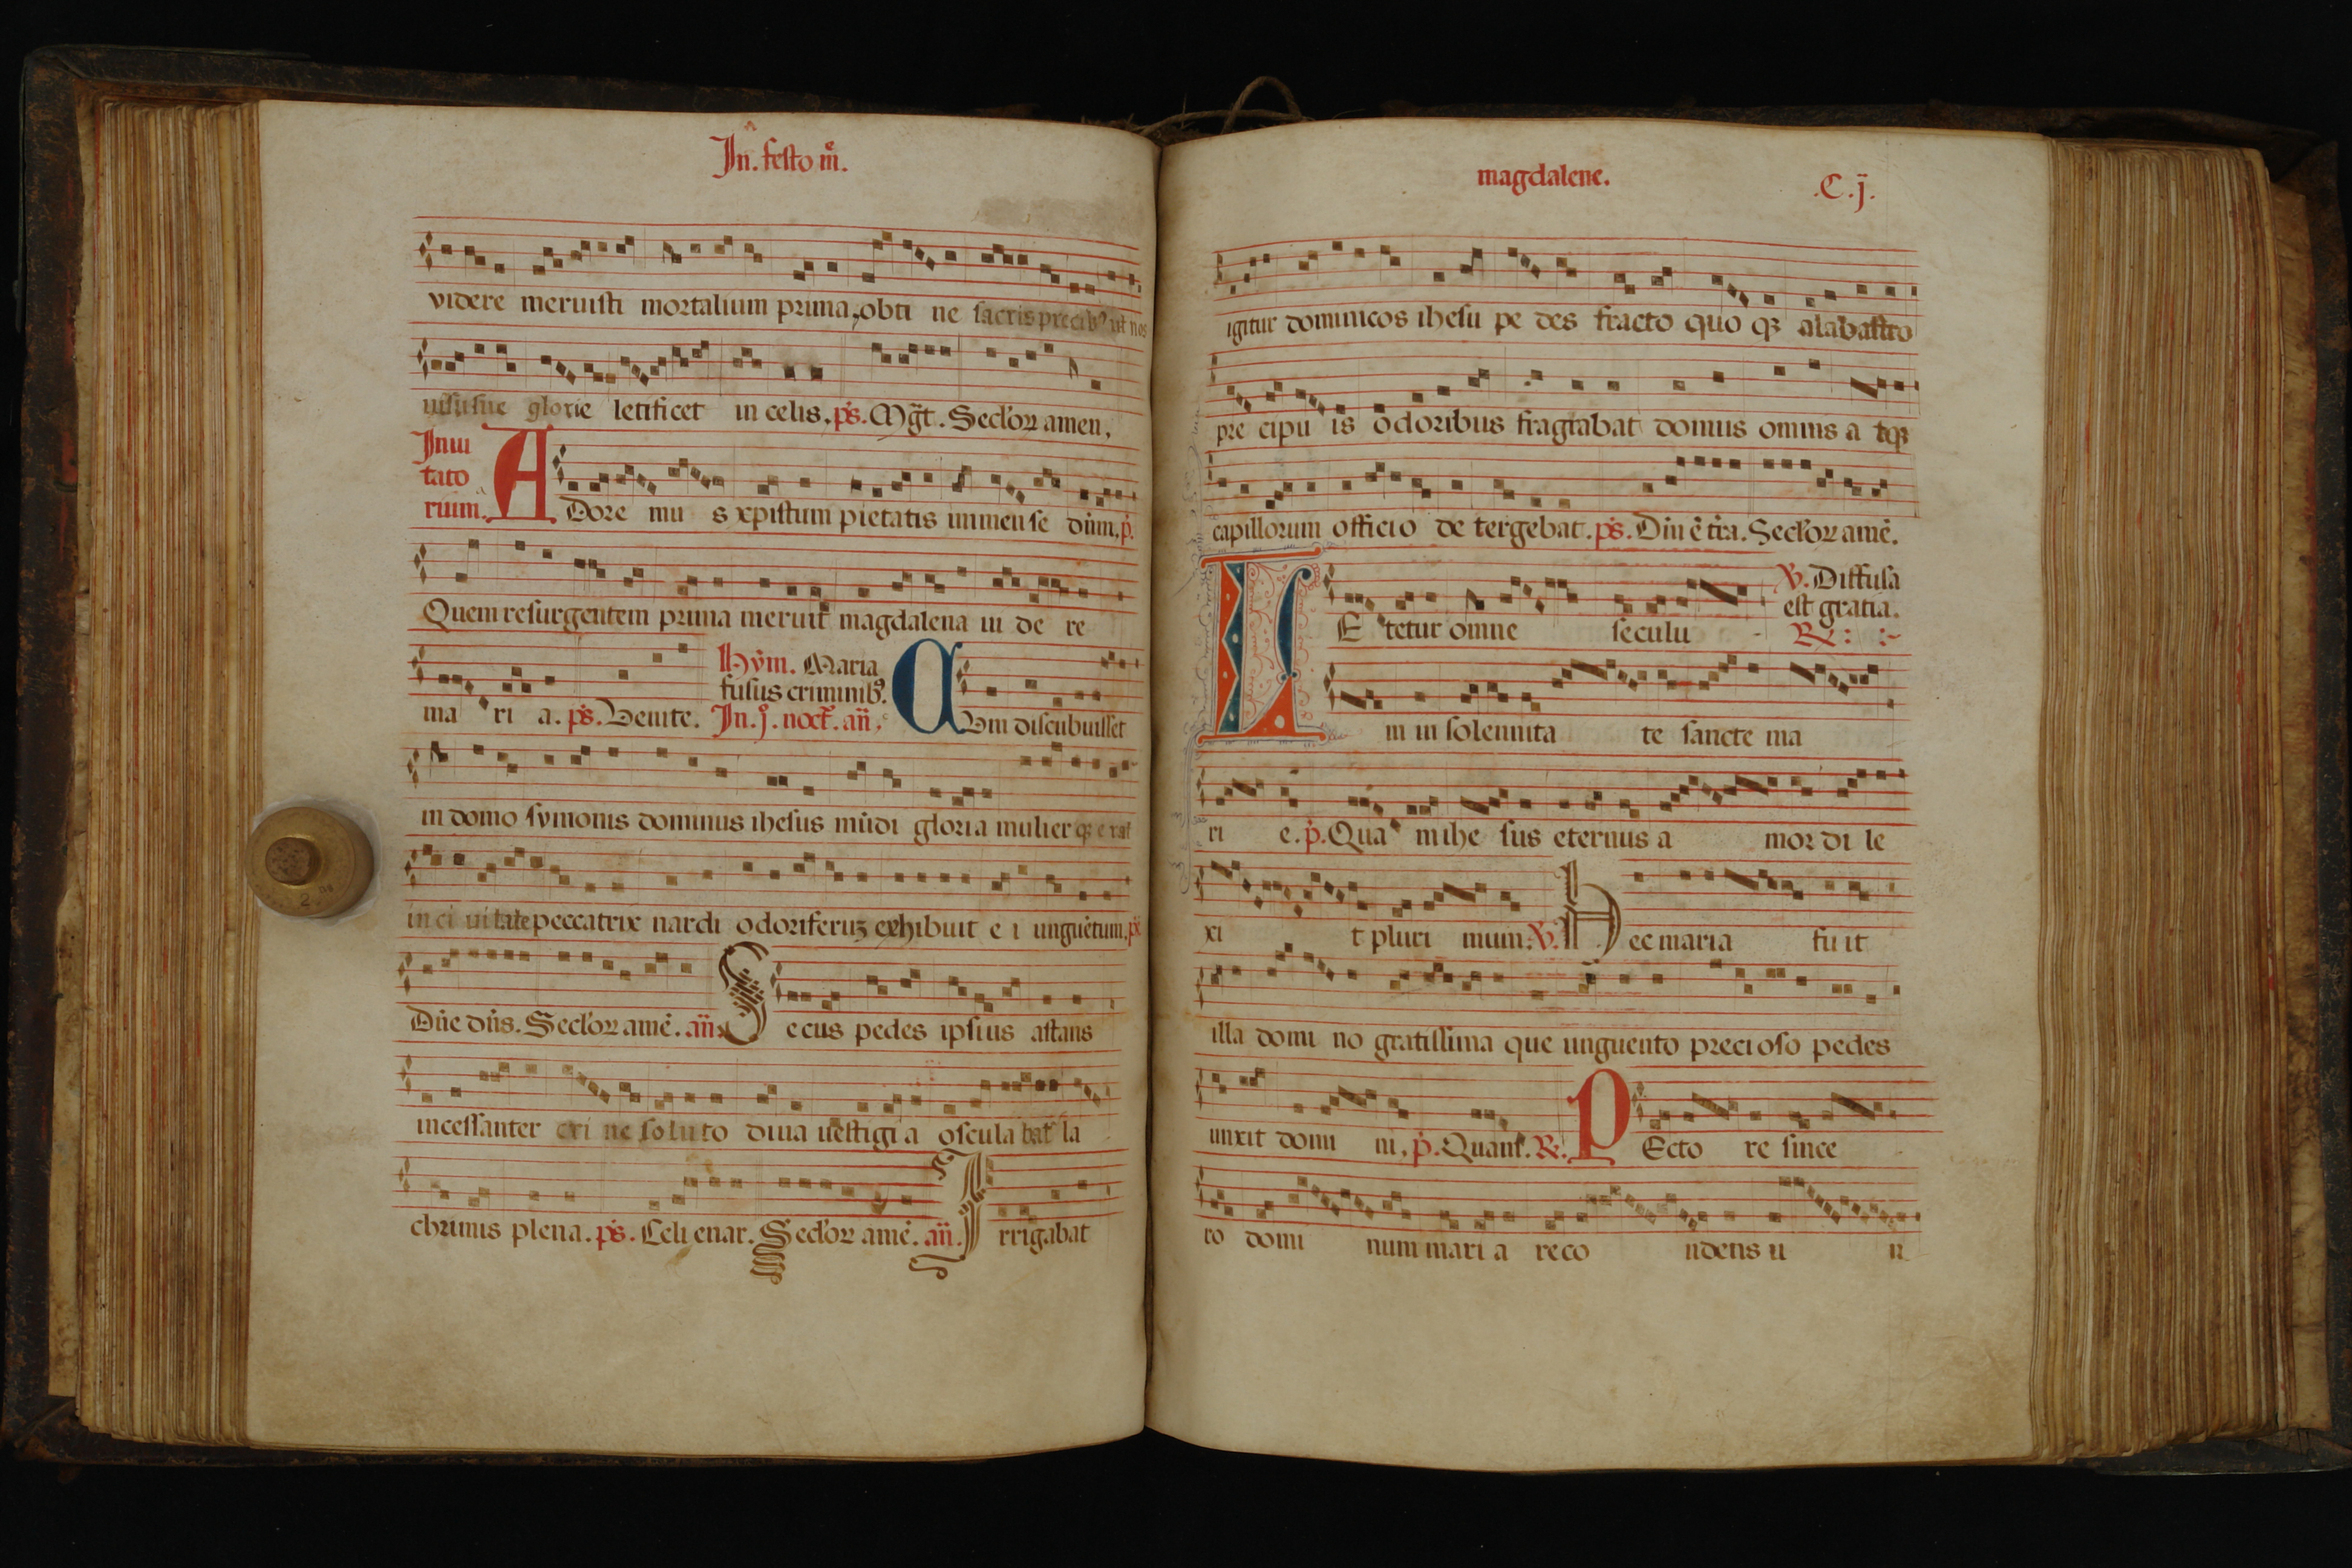 In. festo m̄.
videre meruisti mortalium prima, obti ne sacris precib⁹ ut nos
uisu sue glorie letificet in celis. ps. Mḡt. Seclor amen.
Inui
tato
rium. A Dore mu s xpistum pietatis immense dn̄m. p̄.
Quem resurgentem prima meruit magdalena ui de re
ma ri a. ps. Venite.
Hȳm. Maria
fusus criminib⁹.
In. j. noct. an̄. C Vm discubuisset
in domo symonis dominus ihesus mūdi gloria mulier q̄ erat
in ci uitate peccatrix nardi odoriferuꝫ exhibuit e i unguētum. ps.
Dn̄e dn̄s. Seclor amē. an̄. S ecus pedes ipsius astans
incessanter cri ne soluto diua uestigi a oscula bat la
chrimis plena. ps. Celi enar. Seclor amē. an̄. I rrigabat
magdalene. .C.j.
igitur dominicos ihesu pe des fracto quo qꝫ alabastro
pre cipu is odoribus fragrabat domus omnis a tqꝫ
capillorum officio de tergebat. ps. Dn̄i ē tr̄a. Seclor amē.
L E tetur omne seculu
℣. Diffusa
est gratia.
℟:
m in solennita te sancte ma
ri e. p̄. Qua m ihe sus eternus a mor di le
xi t pluri mum. ℣. H ec maria fu it
illa domi no gratissima que unguento precioso pedes
unxit domi ni. p̄. Quam. ℟. P Ecto re since
ro domi num mari a reco ndens u n